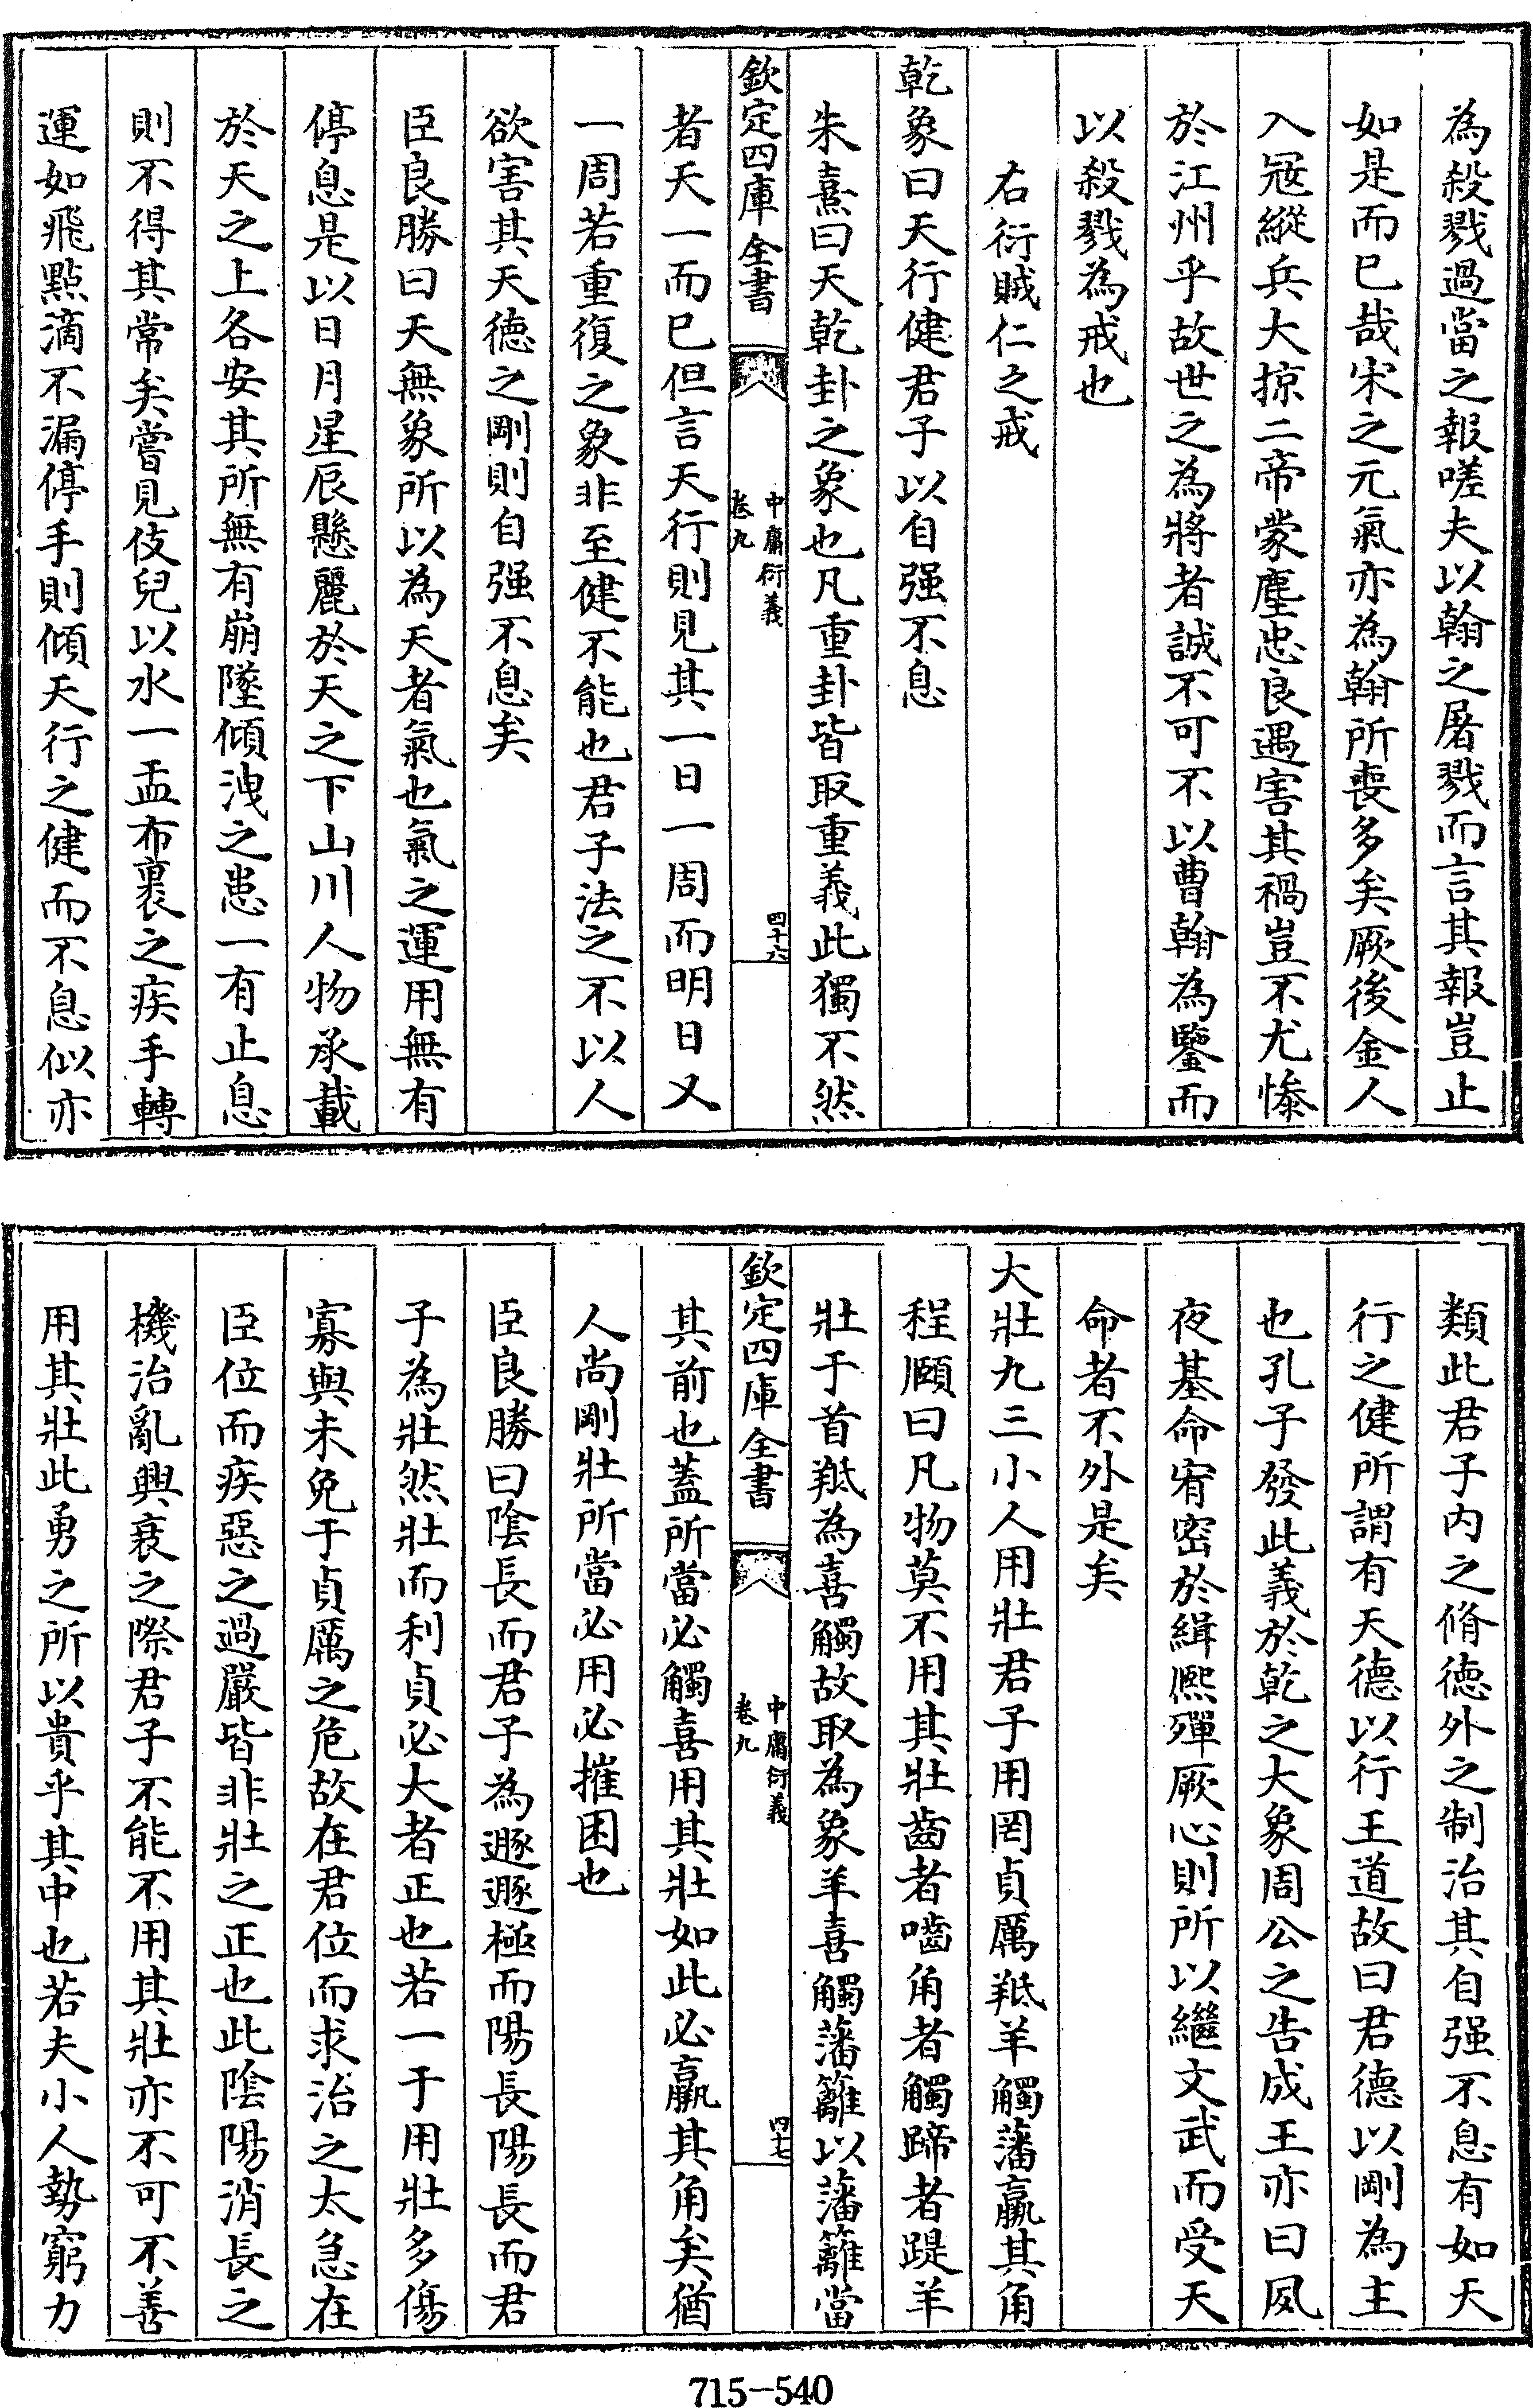 為殺戮過當之報嗟夫以翰之屠戮而言其報豈止
如是而已哉宋之元氣亦為翰所喪多矣厥後金人
入冦縱兵大掠二帝蒙塵忠良遇害其禍豈不尤慘
於江州乎故世之為將者誠不可不以曹翰為鑒而
以殺戮為戒也
右衍賊仁之戒
乾象曰天行健君子以自强不息
朱熹曰天乾卦之象也凡重卦皆取重義此獨不然
欽定四庫全書
中庸衍義
卷九
四十六
者天一而已但言天行則見其一日一周而明日又
一周若重復之象非至健不能也君子法之不以人
欲害其天德之剛則自强不息矣
臣良勝曰天無象所以為天者氣也氣之運用無有
停息是以日月星辰懸麗於天之下山川人物承載
於天之上各安其所無有崩墜傾洩之患一有止息
則不得其常矣嘗見伎兒以水一盂布裹之疾手轉
運如飛點滴不漏停手則傾天行之健而不息似亦
類此君子内之脩徳外之制治其自强不息有如天
行之健所謂有天德以行王道故曰君德以剛為主
也孔子發此義於乾之大象周公之告成王亦曰夙
夜基命宥密於緝熙殫厥心則所以繼文武而受天
命者不外是矣
大壯九三小人用壯君子用罔貞厲羝羊觸藩羸其角
程頤曰凡物莫不用其壯齒者嚙角者觸蹄者踶羊
壯于首羝為喜觸故取為象羊喜觸藩籬以藩籬當
欽定四庫全書
中庸衍義
卷九
四十七
其前也蓋所當必觸喜用其壯如此必羸其角矣猶
人尚剛壯所當必用必摧困也
臣良勝曰隂長而君子為遯遯極而陽長陽長而君
子為壯然壯而利貞必大者正也若一于用壯多傷
寡與未免于貞厲之危故在君位而求治之太急在
臣位而疾惡之過嚴皆非壯之正也此隂陽消長之
機治亂興衰之際君子不能不用其壯亦不可不善
用其壯此勇之所以貴乎其中也若夫小人勢窮力
715-540